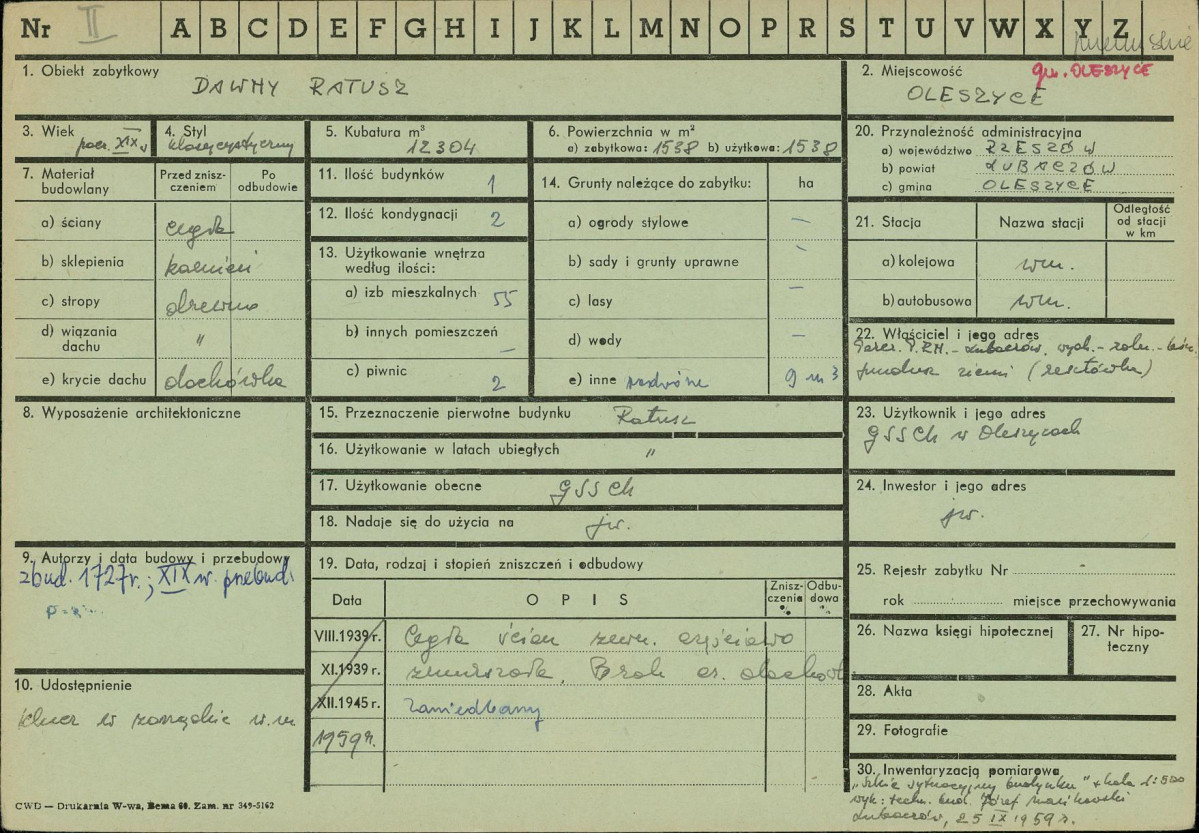 Nr II A B C D E F G H I J K L M N O P R S T U V W X Y Z
1. Obiekt zabytkowy
DAWNY RATUSZ
2. Miejscowość
gm. OLESZYCE
OLESZYCE
3. Wiek
pocz. XIX w
4. Styl
klasycystyczny
5. Kubatura m³
12304
6. Powierzchnia w m²
a) zabytkowa: 1538 b) użytkowa: 1538
7. Materiał budowlany
Przed znisz-
czeniem
Po
odbudowie
a) ściany cegła
b) sklepienia kamień
c) stropy drewno
d) wiązania
dachu "
e) krycie dachu dachówka
8. Wyposażenie architektoniczne
9. Autorzy i data budowy i przebudowy
zbud. 1727r.; XIX w. przebud.
10. Udostępnienie
klucz w zarządzie
11. Ilość budynków 1
12. Ilość kondygnacji 2
13. Użytkowanie wnętrza
według ilości:
a) izb mieszkalnych 55
b) innych pomieszczeń —
c) piwnic 2
14. Grunty należące do zabytku: ha
a) ogrody stylowe —
b) sady i grunty uprawne —
c) lasy —
d) wody —
e) inne
15. Przeznaczenie pierwotne budynku Ratusz
16. Użytkowanie w latach ubiegłych "
17. Użytkowanie obecne GSSCh
18. Nadaje się do użycia na jw.
19. Data, rodzaj i stopień zniszczeń i odbudowy
Data
OPIS
Znisz-
czenia
%
Odbu-
dowa
%
VIII.1939 r. Cegła ścian zewn. częściowo
XI.1939 r. zmurszała, Brak cz. dachów
XII.1945 r. Zaniedbany
1959 r.
20. Przynależność administracyjna
a) województwo RZESZÓW
b) powiat LUBACZÓW
c) gmina OLESZYCE
21. Stacja
Nazwa stacji
Odległość
od stacji
w km
a) kolejowa wm.
b) autobusowa wm.
22. Właściciel i jego adres
fundusz ziemi (resztówka)
23. Użytkownik i jego adres
GSSCh w Oleszycach
24. Inwestor i jego adres
jw.
25. Rejestr zabytku Nr
rok miejsce przechowywania
26. Nazwa księgi hipotecznej
27. Nr hipo-
teczny
28. Akta
29. Fotografie
30. Inwentaryzacja pomiarowa
"Szkic sytuacyjny budynku" skala 1:500
wyk: techn. bud. Józef
Lubaczów, 25 IX 1959 r.
CWD — Drukarnia W-wa, Bema 60. Zam. nr 349-5162